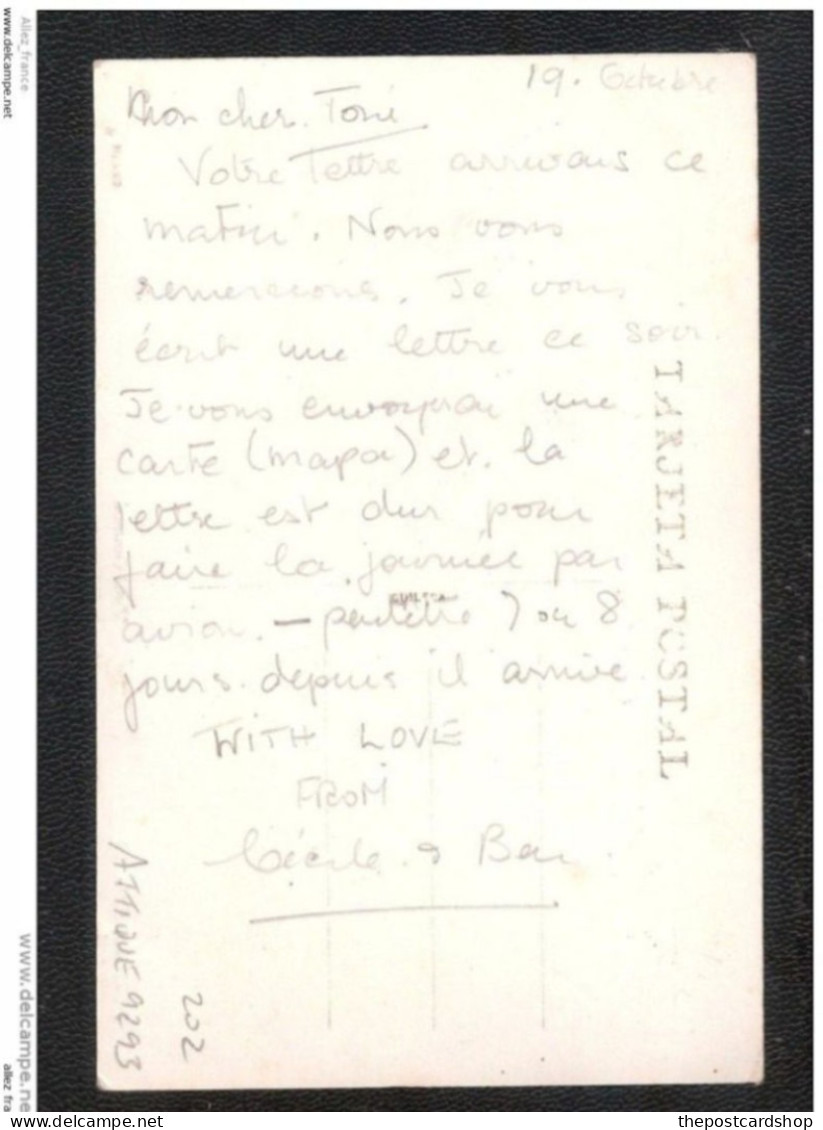 19. Octubre
Mon cher Toni
Votre lettre arrivons ce
matin. Nous vous
remercions. Je vous
écrit une lettre ce soir.
Je vous envoyrai une
carte (mapa) et la
lettre est dur pour
faire la journée par
avion. — peutetre 7 ou 8
jours depuis il arrive
WITH LOVE
FROM
Cécile &
TARJETA POSTAL
ATTIQUE 9293
202
Allez_france
www.delcampe.net
www.delcampe.ne
allez fra
thepostcardshop